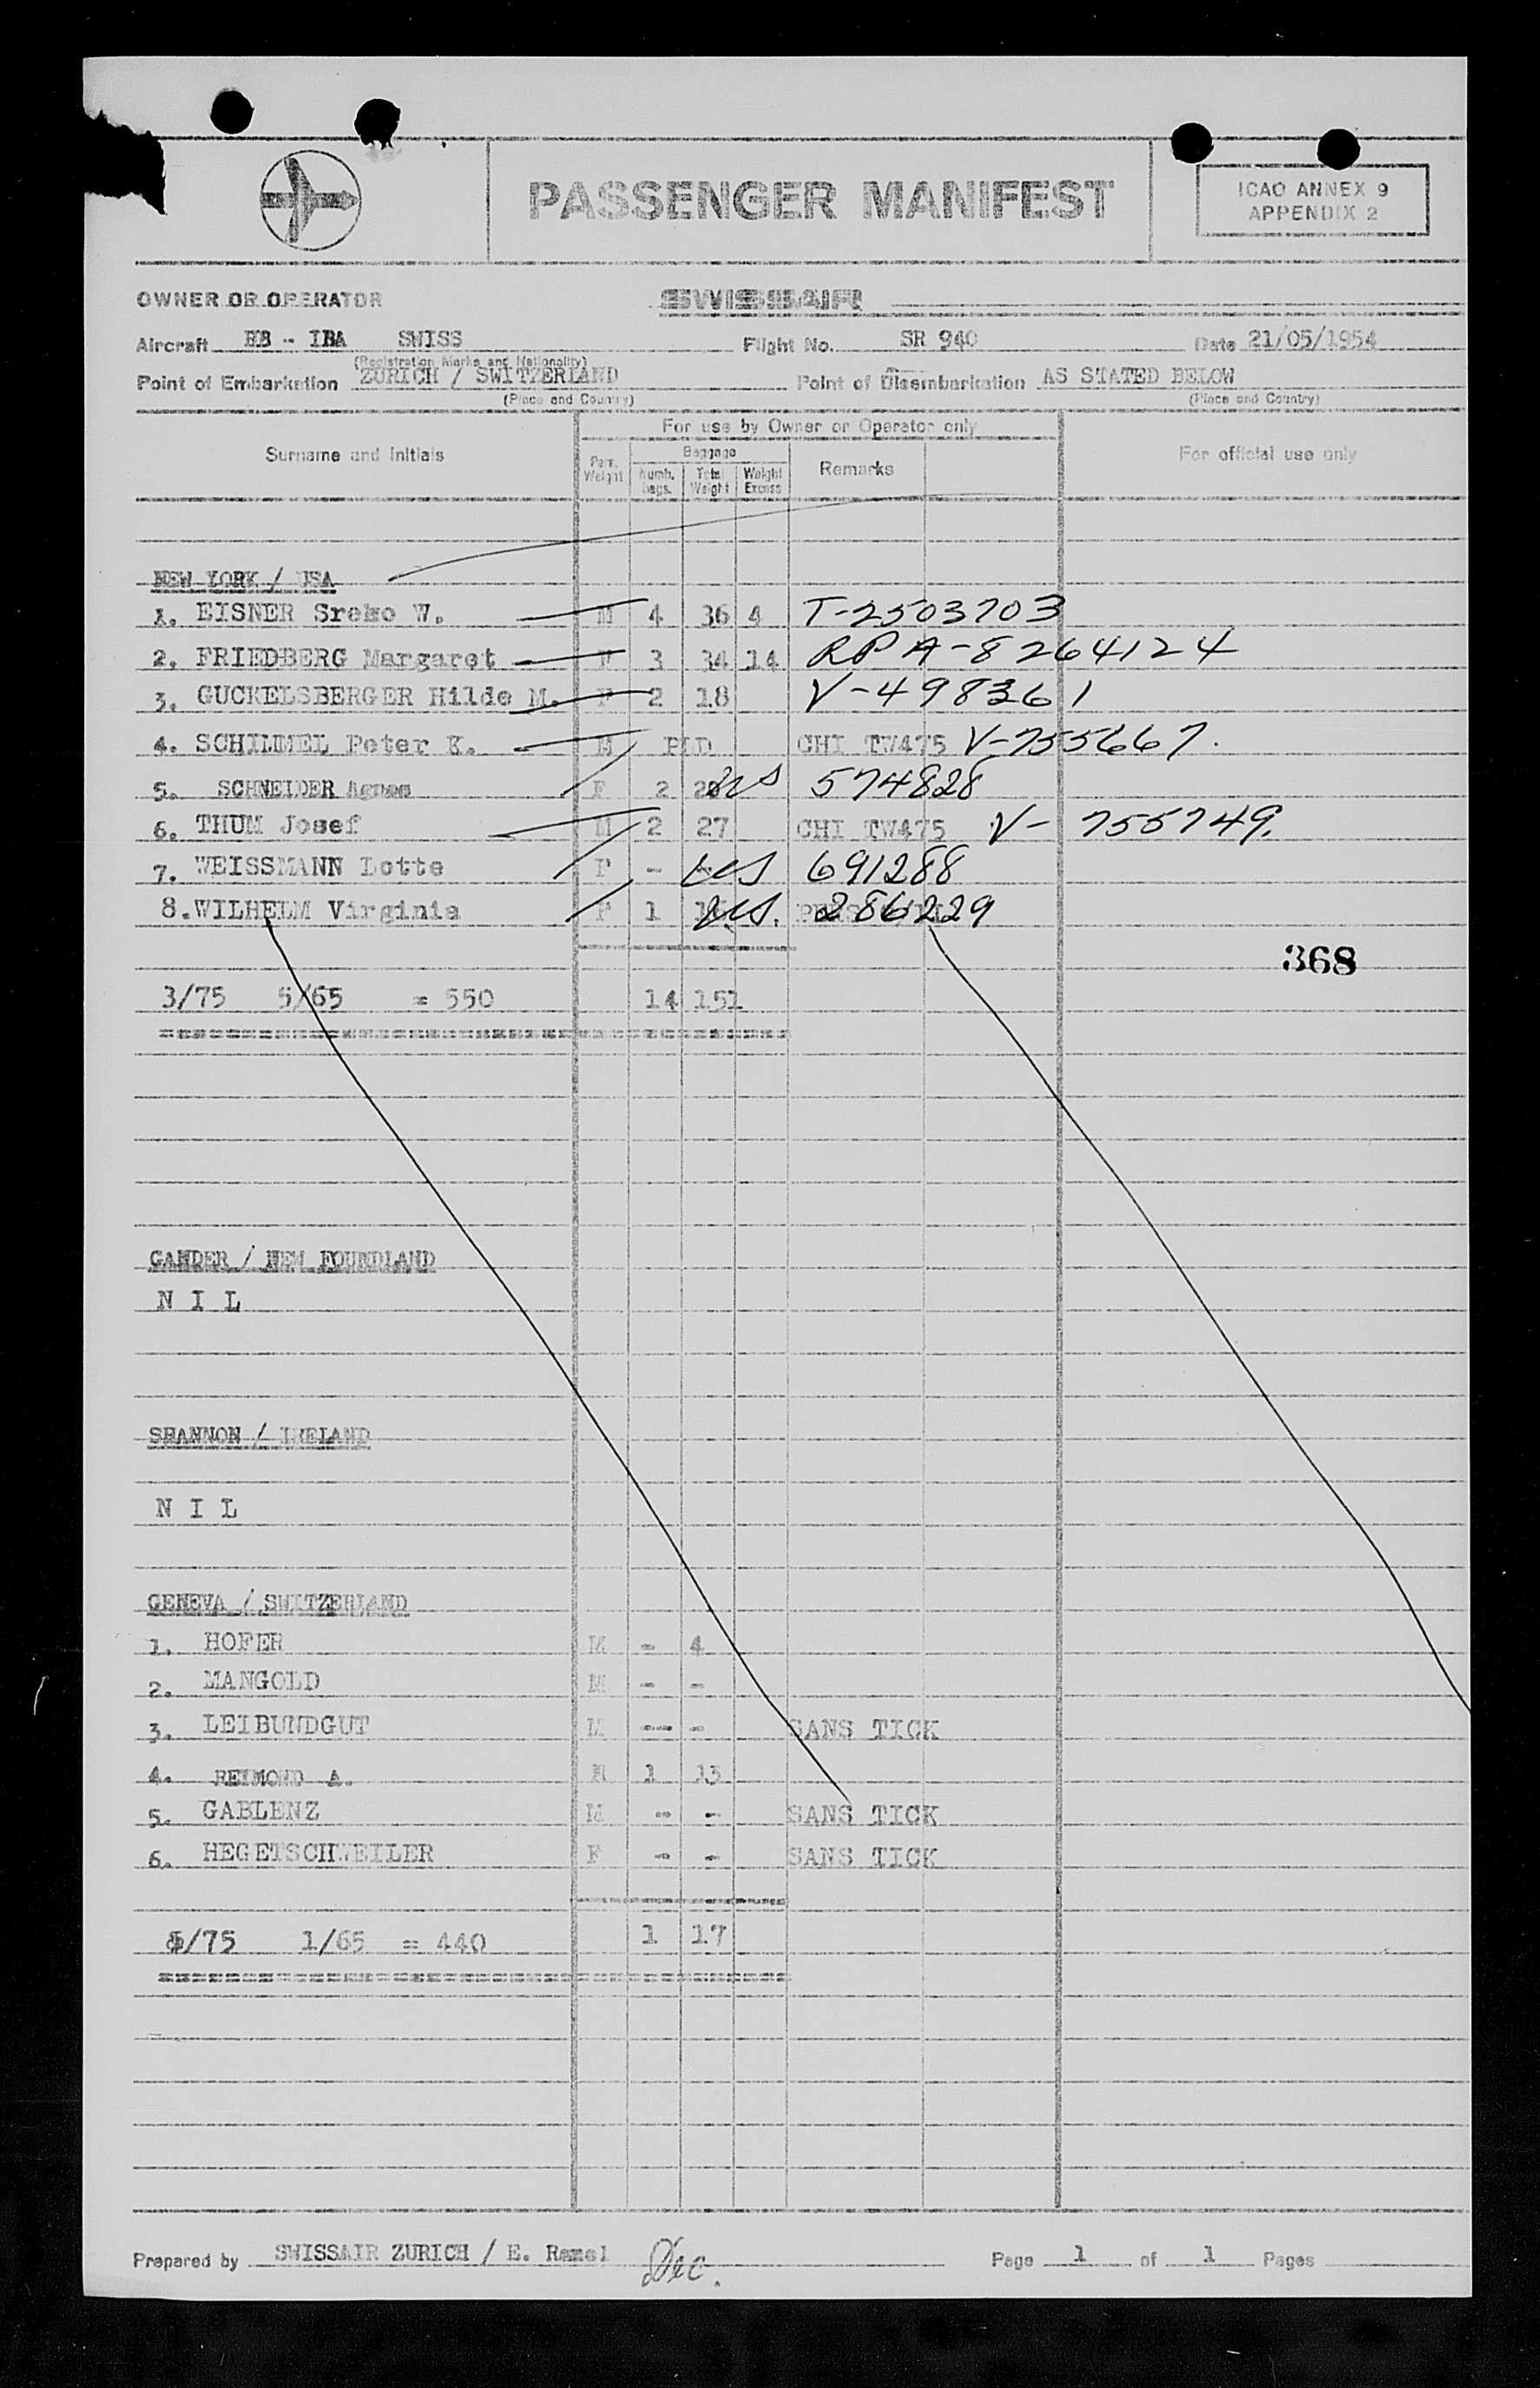 PASSENGER MANIFEST
ICAO ANNEX 9
APPENDIX 2
OWNER OR OPERATOR SWISSAIR
Aircraft HB - IBA SWISS Flight No. SR 940 Date 21/05/1954
(Registration Marks and Nationality)
Point of Embarkation ZURICH / SWITZERLAND Point of Disembarkation AS STATED BELOW
(Place and Country) (Place and Country)
For use by Owner or Operator only
Surname and Initials Baggage Remarks For official use only
Pers. Weight Numb. bags. Total Weight Weight Excess
NEW YORK / USA
1. EISNER Sreko W. M 4 36 4 T-2503703
2. FRIEDBERG Margaret F 3 34 14 RP A-8264124
3. GUCKELSBERGER Hilde M. F 2 18 V-498361
4. SCHILMEL Peter K. M P D CHI TW475 V-755667.
5. SCHNEIDER Agnes F 2 20 US 574828
6. THUM Josef M 2 27 CHI TW475 V- 755749.
7. WEISSMANN Lotte F - US 691288
8. WILHELM Virginia F 1 US. 286229
368
3/75 5/65 = 550 14 151
GANDER / NEW FOUNDLAND
N I L
SHANNON / IRELAND
N I L
GENEVA / SWITZERLAND
1. HOFER M - 4
2. MANGOLD M - -
3. LEIBUNDGUT M -- - SANS TICK
4. REYMOND A. M 1 13
5. GABLENZ M - - SANS TICK
6. HEGETSCHWEILER F - - SANS TICK
5/75 1/65 = 440 1 17
Prepared by SWISSAIR ZURICH / E. Ramel Dec. Page 1 of 1 Pages